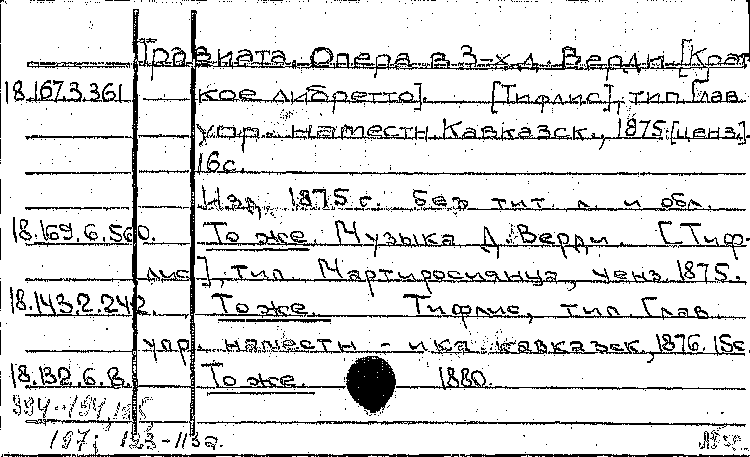 Травиата. Опера в 3-х д. Верди. [Крат
18.167.3.361 кое либретто]. [Тифлис], тип. Глав.
упр. наместн. Кавказск., 1875 [ценз].
16с.
Изд. 1875 г. без тит. л. и обл.
18.169.6.560. То же. Музыка Д. Верди. [Тиф-
лис], тип. Мартиросиянца, ценз. 1875.
18.143.2.242. То же. Тифлис, тип. Глав.
упр. наместн-ика кавказск, 1876. 15с.
18.132.6.8. То же. 1880.
197; 123-113а.